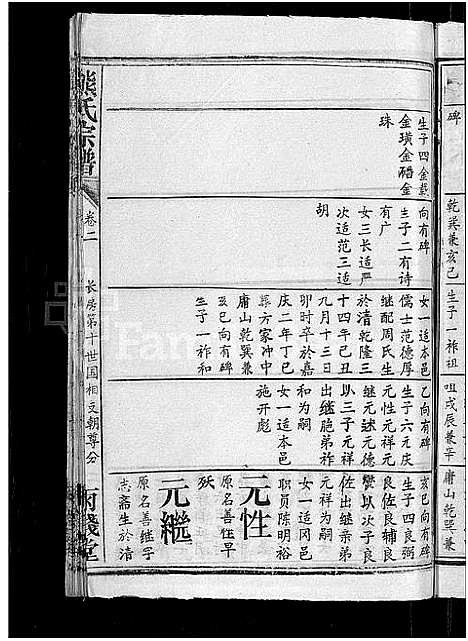 碑
乾巽兼亥巳
生子一祚祖
咀戌辰兼辛
庸山乾巽兼
熊氏宗譜
卷二
长房第十世国相支朝尊分
生子四金鼓
金璜金磻金
珠
向有碑
生子二有诗
有广
女三长适严
次适范三适
胡
女一适本邑
儒士范德厚
继配周氏生
於清乾隆三
十四年己丑
九月十三日
卯时卒於嘉
庆二年丁巳
葬方家冲中
庸山乾巽兼
亥巳向有碑
生子一祚和
乙向有碑
生子六元庆
元性元祥元
继元述元德
以三子元祥
出继胞弟祚
和为嗣
女一适本邑
施开彪
亥巳向有碑
生子四良弼
良佐良辅良
赞以次子良
佐出继亲弟
元祥为嗣
女一适冈邑
职员陈明裕
元性
原名善性早
殀
元继
原名善继字
志斋生於清